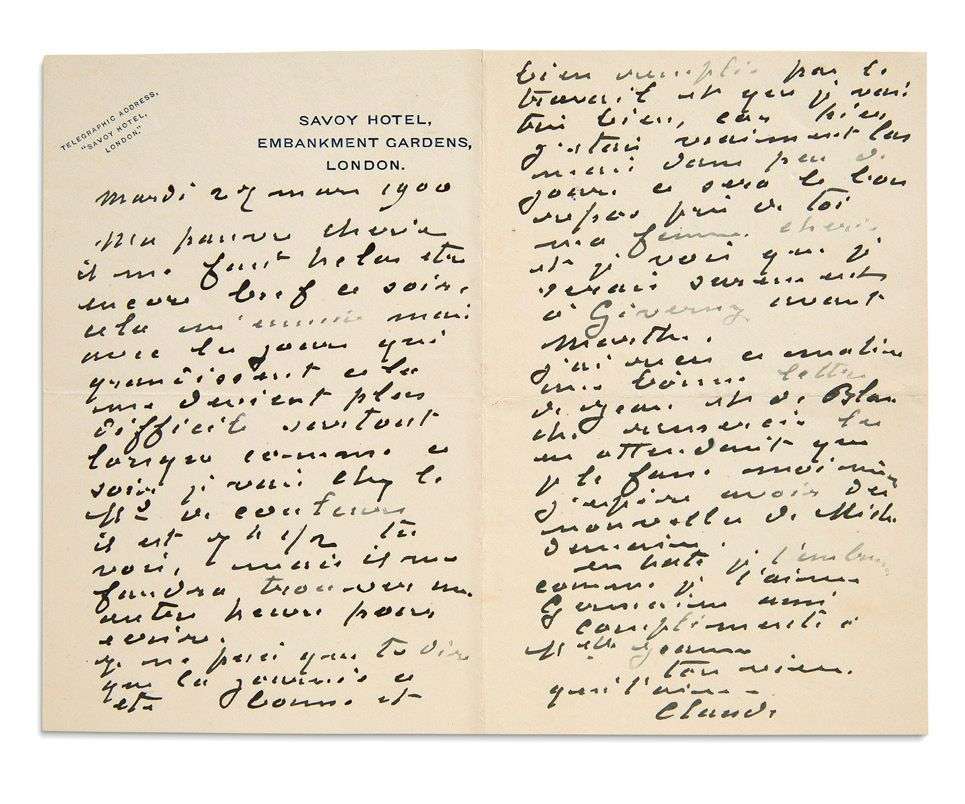 TELEGRAPHIC ADDRESS,
"SAVOY HOTEL,
LONDON."
SAVOY HOTEL,
EMBANKMENT GARDENS,
LONDON.
Mardi 27 mars 1900
Ma pauvre cherie
il me faut helas etre
encore bref ce soir,
cela m'ennuie mais
avec les jours qui
grandissent cela
me devient plus
difficile surtout
lorsque comme ce
soir je vais chez le
Md de couleurs
il est 7 h 1/2 tu
vois, mais il me
faudra trouver une
autre heure pour
ecrire.
je ne puis que te dire
que la journée a
ete bonne et
bien remplie par le
travail et que je vais
tres bien, car hier
j'etais vraiment las
mais dans peu de
jours ce sera le bon
repos près de toi
ma femme cherie
et je vois que je
serais surement
à Giverny avant
Marthe.
j'ai recu ce matin
une bonne lettre
de Jean et de Blan
che remercie les
en attendant que
je le fasse moi même
j'espère avoir des
nouvelles de Mich.
demain.
en hate je t'embrasse
comme je t'aime
Germaine aussi
compliments à
Melle Jeanne
ton vieux
qui t'aime
Claude